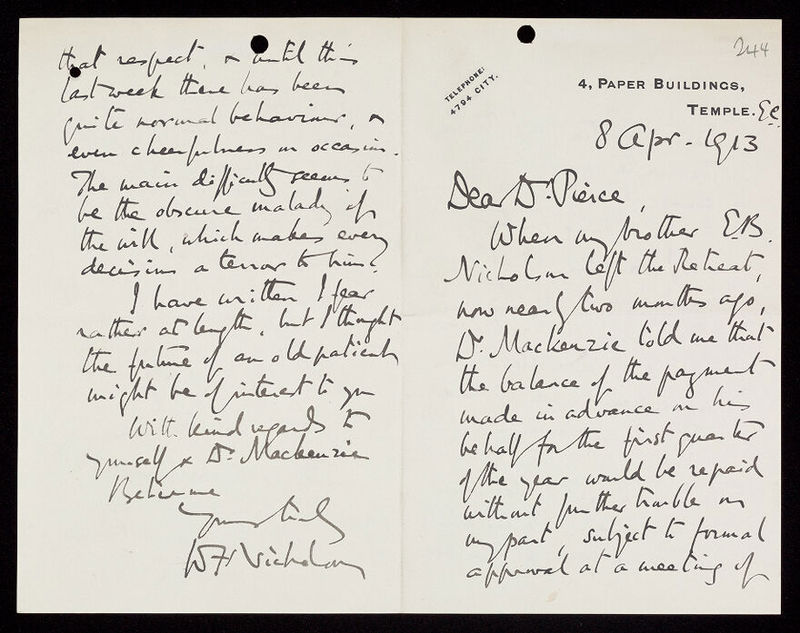 244
TELEPHONE:
4794 CITY.
4, PAPER BUILDINGS,
TEMPLE. E.C.
8 Apr. 1913
Dear Dr. Pierce,
When my brother E.B.
Nicholson left the Retreat,
now nearly two months ago,
Dr. Mackenzie told me that
the balance of the payment
made in advance on his
behalf for the first quarter
of the year would be repaid
without further trouble on
my part, subject to formal
approval at a meeting of
that respect, & until this
last week there has been
quite normal behaviour, &
even cheerfulness on occasion.
The main difficulty seems to
be the obscure malady of
the will, which makes every
decision a terror to him.
I have written I fear
rather at length, but I thought
the future of an old patient
might be of interest to you
With kind regards to
yourself & Dr. Mackenzie
Believe me
Yours truly
W F Nicholson